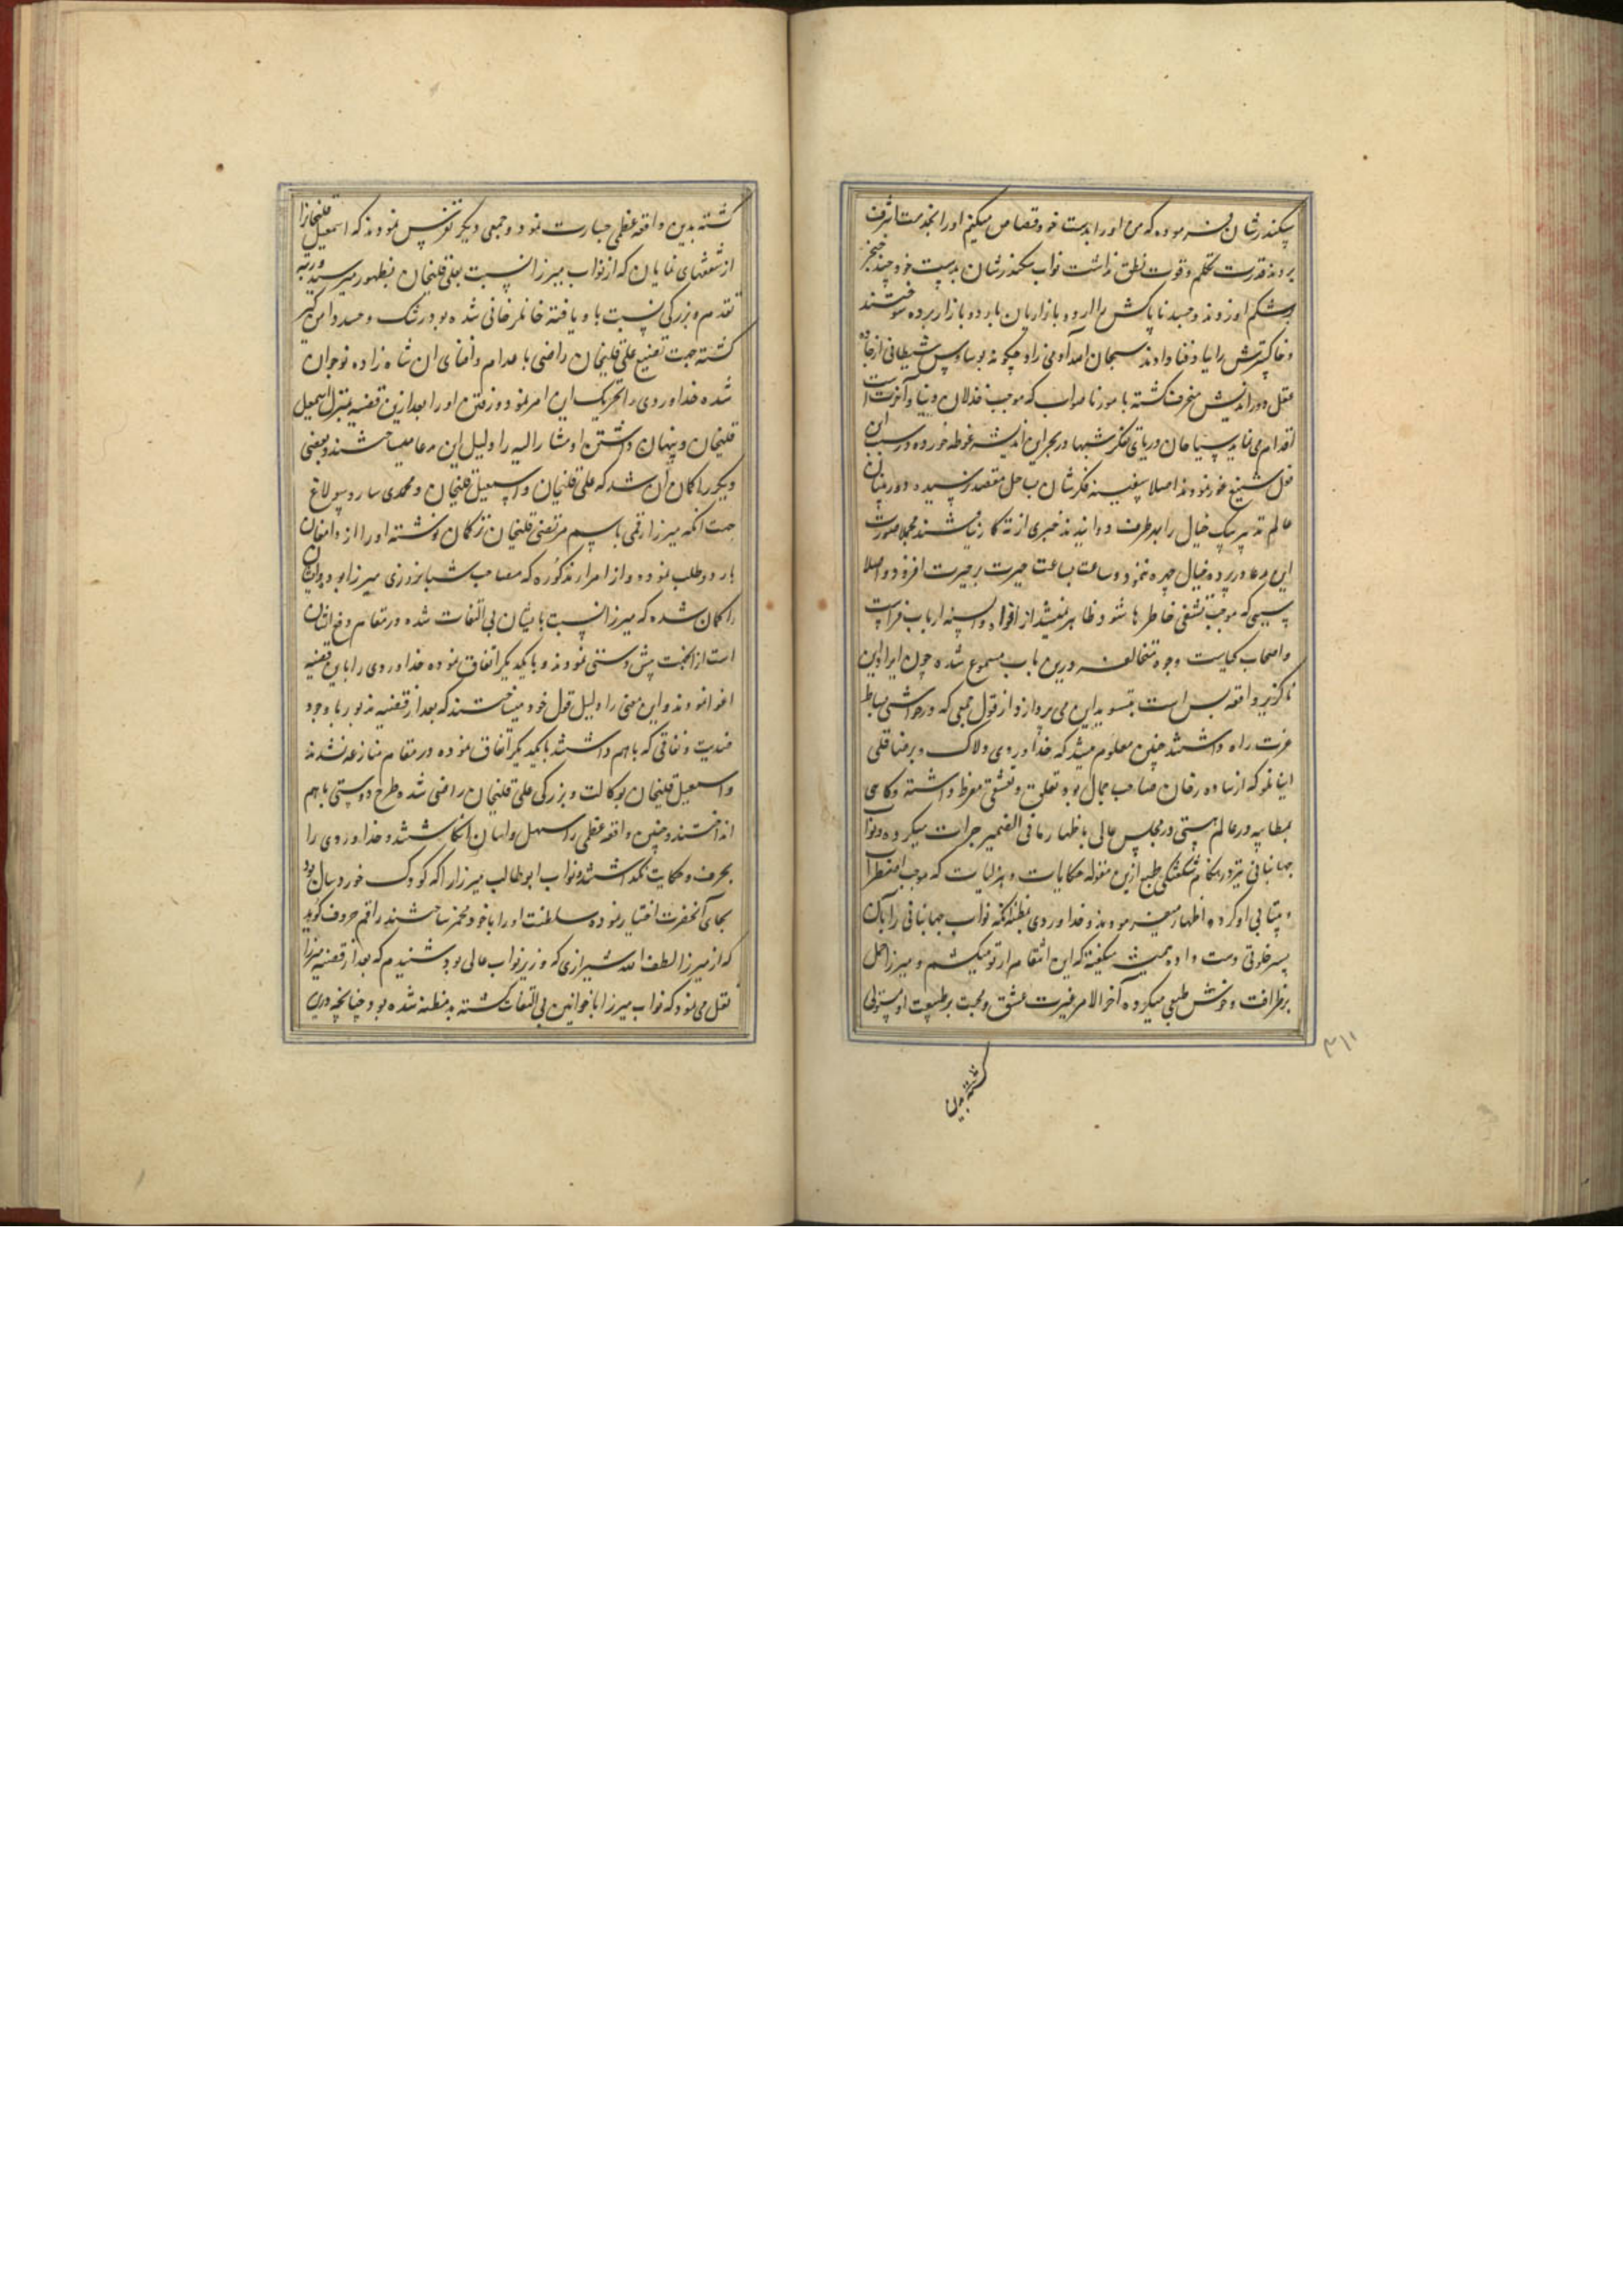 سکندرشان فرموده که من او را بدست خود قصاص میکنم او را بخدمت اشرف
بردند قدرت تکلم و قوت نطق نداشت نواب سکندرشان بدست خود چند خنجر
بر شکم او زدند و جسد ناپاکش را الوده بازاریان باردو بازار برده سوختند
و خاکسترش را بباد فنا دادند سبحان الله آدمی زاد چگونه بوساوس شیطانی از جاده
عقل دوراندیش منحرف گشته بامور ناصواب که موجب خذلان دنیا و آخرت است
اقدام می نماید سیاحان دریای تفکر شبها در بحر این اندیشه غوطه خورده در سبب این
فعل شنیع غور نمودند اصلا سفینه فکرشان بساحل مقصد نرسیده دوربینان
عالم تدبیر پیک خیال را بهر طرف دوانیدند خبری از ته کار نیافتند مجملا صورت
این مدعا در پرده خیال چهره ننمود و ساعت بساعت حیرت بر حیرت افزود و اصلا
سببی که موجب تشفی خاطرها شود ظاهر نمیشد از افواه و السنه ارباب فراست
و اصحاب کیاست وجوه متخالفه درین باب مسموع شده چون ایراد این
ناگزیر واقعه بس است بتسوید این می پردازد از قول جمعی که در حواشی بساط
عزت راه داشتند چنین معلوم میشد که خداوردی دلاک و برضا قلی
اینانلو که از ساده رخان صاحب جمال بود تعلق و تعشق مفرط داشته و گاهی
بمطایبه در عالم مستی در مجلس عالی باظهار مافی الضمیر جرات میکرده و نواب
جهانبانی نیز در هنگام شکفتگی طبع ازین مقوله حکایات و هزلیات که موجب اضطراب
و بیتابی او کردد اظهار میفرمودند و خداوردی بمظنه آنکه نواب جهانبانی را با آن
پسر خلوتی دست داده همیشه میگفته که این انتقام از تو میکشم و میرزا حمل
بر ظرافت و خوش طبعی میکرده آخر الامر غیرت عشق و محبت بر طبیعت او مستولی
گشته بدین
۳۱۱
گشته بدین واقعه عظمی جسارت نمود و جمعی دیگر تفرس نمودند که اسمعیل قلیخانرا
از شفقتهای نمایان که از نواب میرزا نسبت بعلی قلیخان بظهور میرسید و رتبه
تقدم و بزرگی نسبت باو یافته خانلرخانی شده بود رشک و حسد دامن گیر
گشته جهت تضییع علی قلیخان راضی باعدام و افنای ان شاه زاده نوجوان
شده خداوردی را تحریک این امر نمود و رفتن او را بعد ازین قضیه بمنزل اسمعیل
قلیخان و پنهان داشتن او مشارالیه را دلیل این مدعا میساختند و بعضی
دیگر را گمان آن شد که علی قلیخان و اسمعیل قلیخان و محمدی ساروسولاغ
جهت آنکه میرزا رقمی باسم مرتضی قلیخان ترکمان نوشته او را از دامغان
باردو طلب نموده و از امراء مذکوره که مصاحب شبانروزی میرزا بودند
را گمان شده که میرزا نسبت بایشان بی التفات شده در مقام دفع ایشان
است ازین جهت پیش دستی نمودند و با یکدیگر اتفاق نموده خداوردی را باین قضیه
اغوا نمودند و این معنی را دلیل قول خود میساختند که بعد از قضیه مذبور با وجود
ضدیت و نفاقی که باهم داشتند با یکدیگر اتفاق نموده در مقام منازعه نشدند
و اسمعیل قلیخان بوکالت و بزرگی علی قلیخان راضی شده طرح دوستی باهم
انداختند و چنین واقعه عظمی را سهل و اسان انگاشتند و خداوردی را
بحرف و حکایت نگذاشتند و نواب ابوطالب میرزا را که کودک خوردسال بود
بجای آنحضرت اختیار نموده سلطنت او را با خود مخمر ساختند راقم حروف گوید
که از میرزا لطف الله شیرازی که وزیر نواب عالی بود شنیدم که بعد از قضیه میرزا
نقل می نمود که نواب میرزا با خوانین بی التفات گشته بدمظنه شده بود چنانچه درین